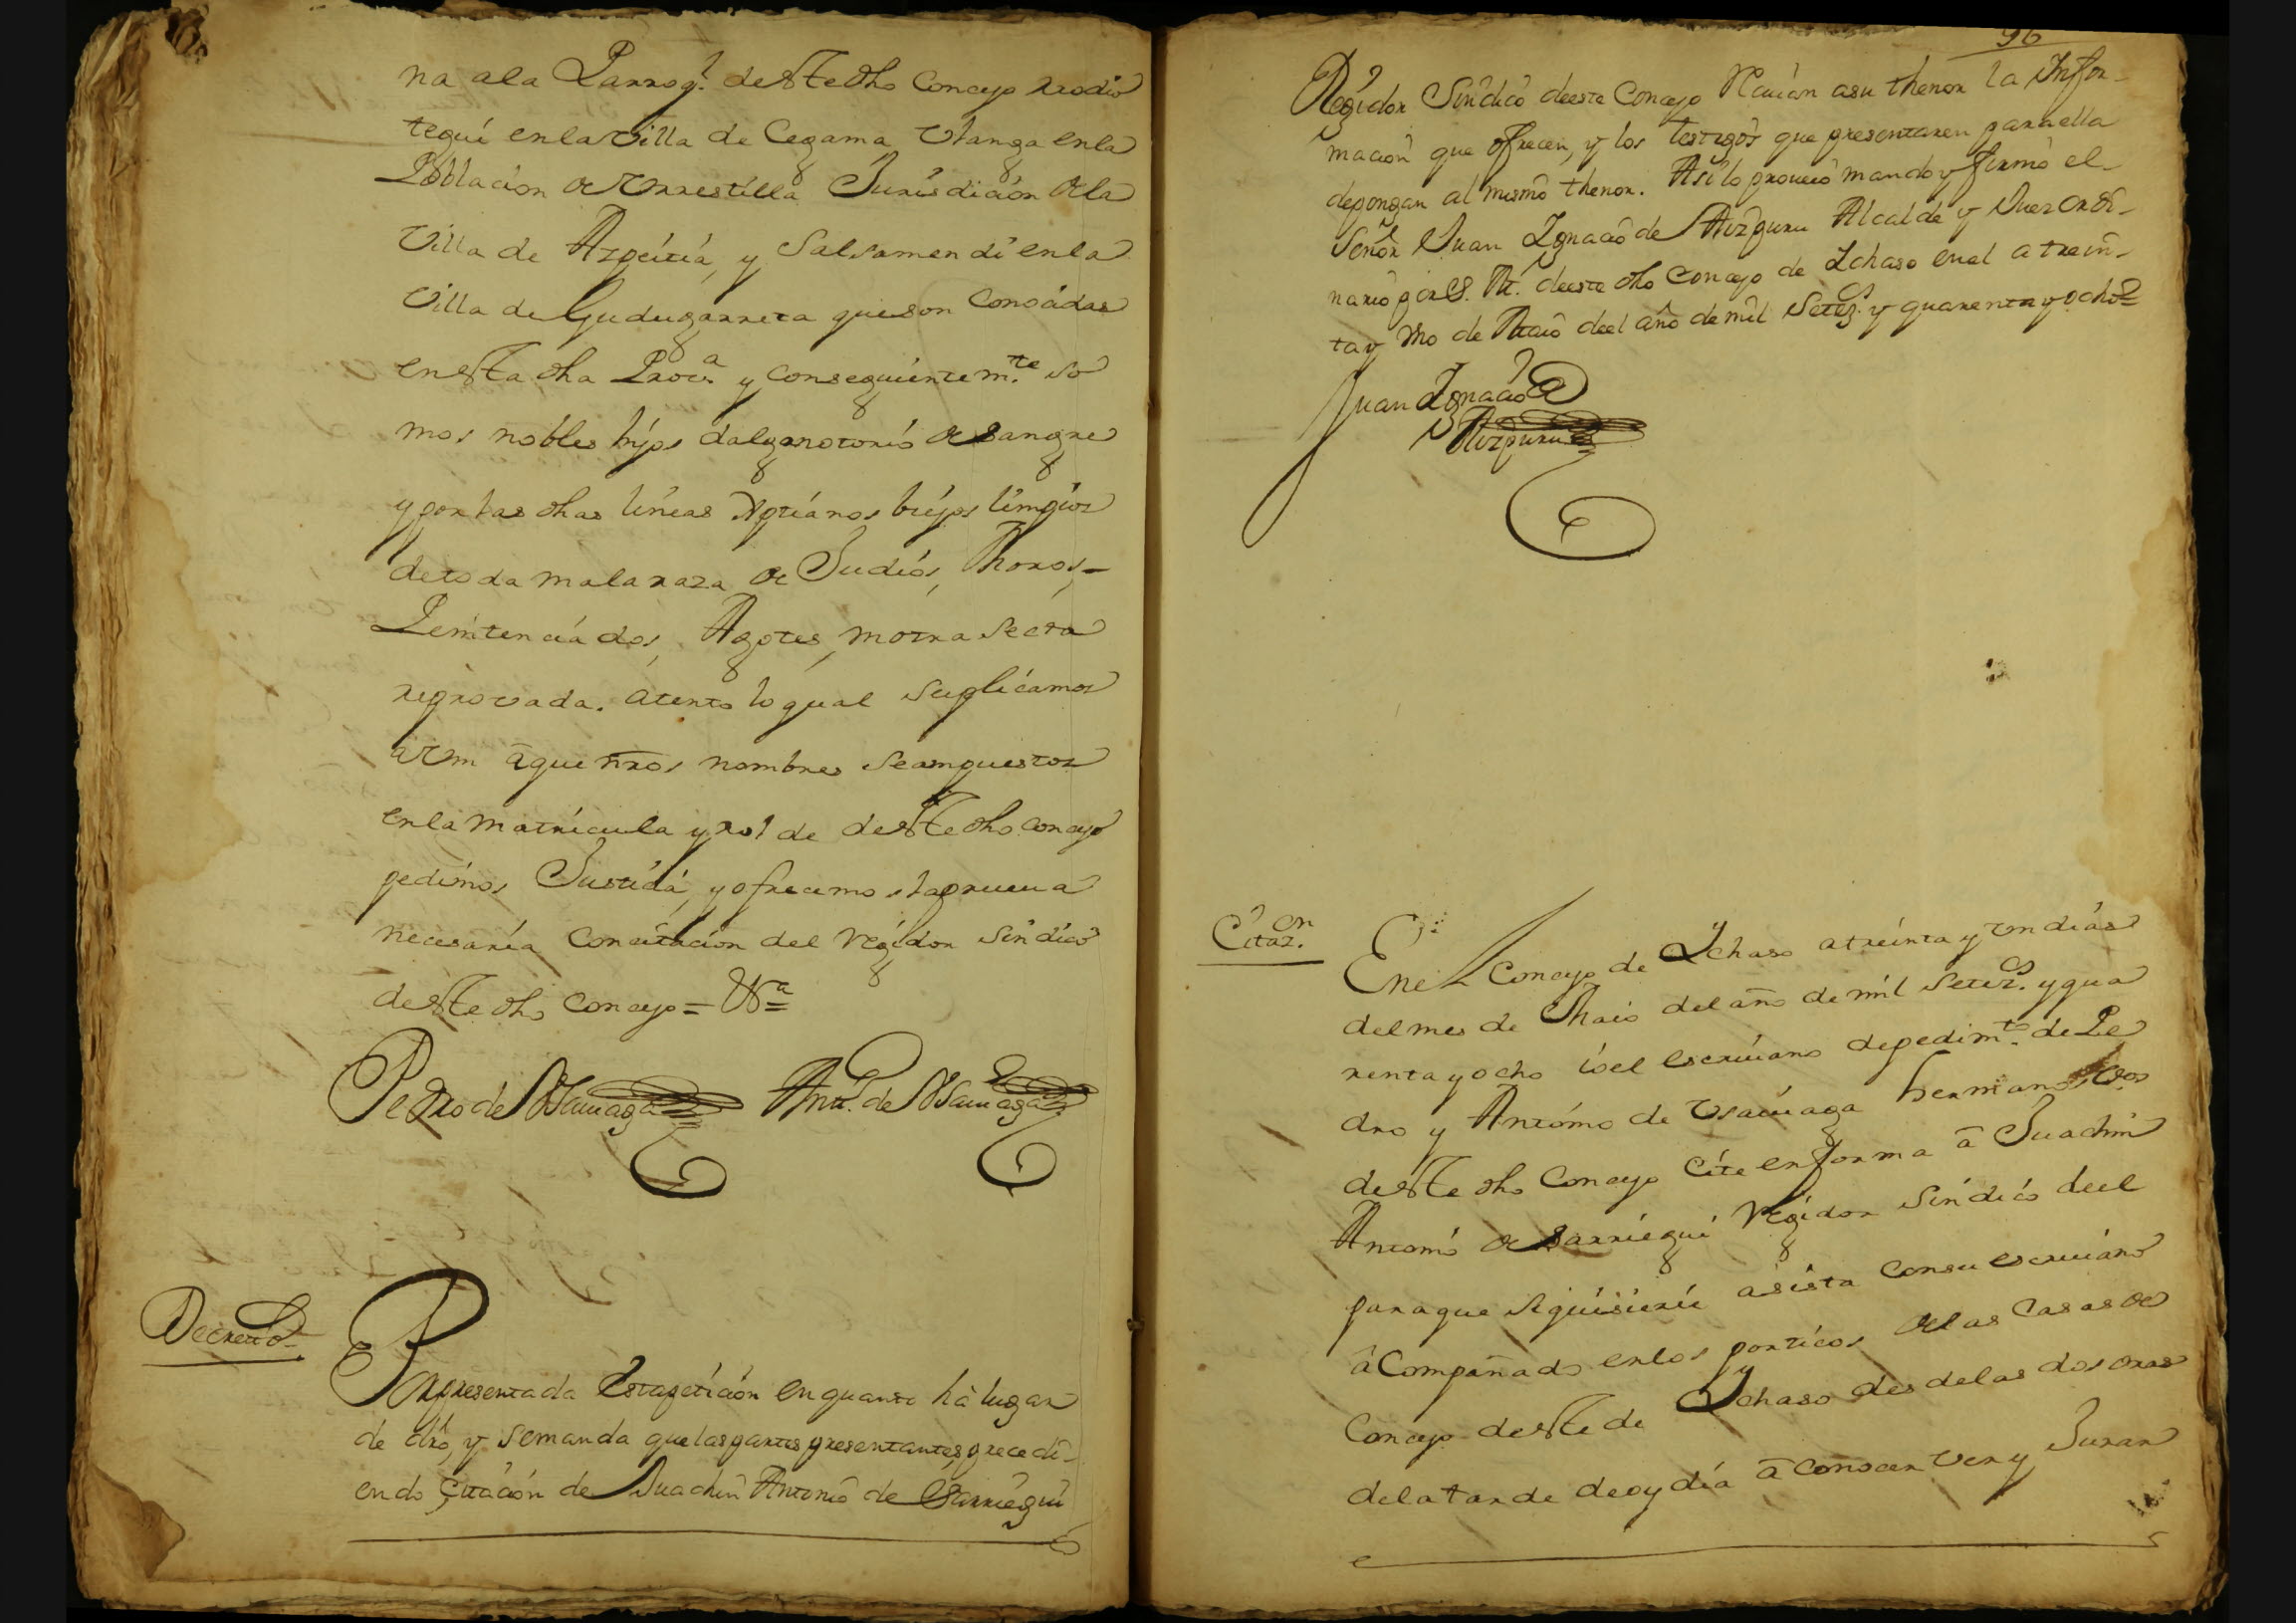 na a la Parroq.l deste dho Concejo Arodio
tegui en la Villa de Cegama Vlanga en la
Poblacion de Vrrestilla Jurisdicion de la
Villa de Azpeitia, y Salsamendi en la
Villa de Gudugarreta que son conocidas
en esta dha Prov.a y conseguientem.te so
mos nobles hijos dalgo notorio de sangre
y por las dhas lineas Xptianos biejos limpios
de toda mala raza de Judios, Moros,
Penitenciados, Agotes, ni otra secta
reprovada. Atento lo qual suplicamos
a Vm a que nros nombres sean puestos
en la matricula y rol de deste dho concejo
pedimos Justicia, y ofrecemos la prueua
necesaria con citacion del Regidor sindico
deste dho concejo =
Pedro de Vsauiaga Ant.o de Vsauiaga
Decreto
Por presentada esta peticion en quanto hà lugar
de dro, y se manda que las partes presentantes, precedi-
endo çitaciòn de Juachin Antonio de Sarriegui
96
Regidor Sindico de este Concejo Reciuan a su thenor la Infor-
macion que ofrecen, y los testigos que presentaren para ella
depongan al mismo thenor. Asi lo proueiò mandò y firmò el
Señor Juan Ignacio de Aizpuru Alcalde y Juez ordi-
nario por S. M. de este dho Concejo de Ichaso en el a trein-
ta y vno de Maio de el año de mil Setez.s y quarenta y ocho =
Juan Ignacio de
Aizpuru
Citaz.on
En el Concejo de Ychaso a treinta y vn dias
del mes de Maio del año de mil setez.s y qua
renta y ocho io el escriuano de pedim.to de Pe
dro y Antonio de Vsauiaga hermanos vez.os
deste dho Concejo Cite en forma â Juachin
Antonio de Sarriegui Regidor Sindico de el
para que si quisiere asista con su escriuano
âcompañado en los porticos de las Casas de
Concejo deste de Ychaso desde las dos oras
de la tarde de oy dia â conocer ver y Jurar